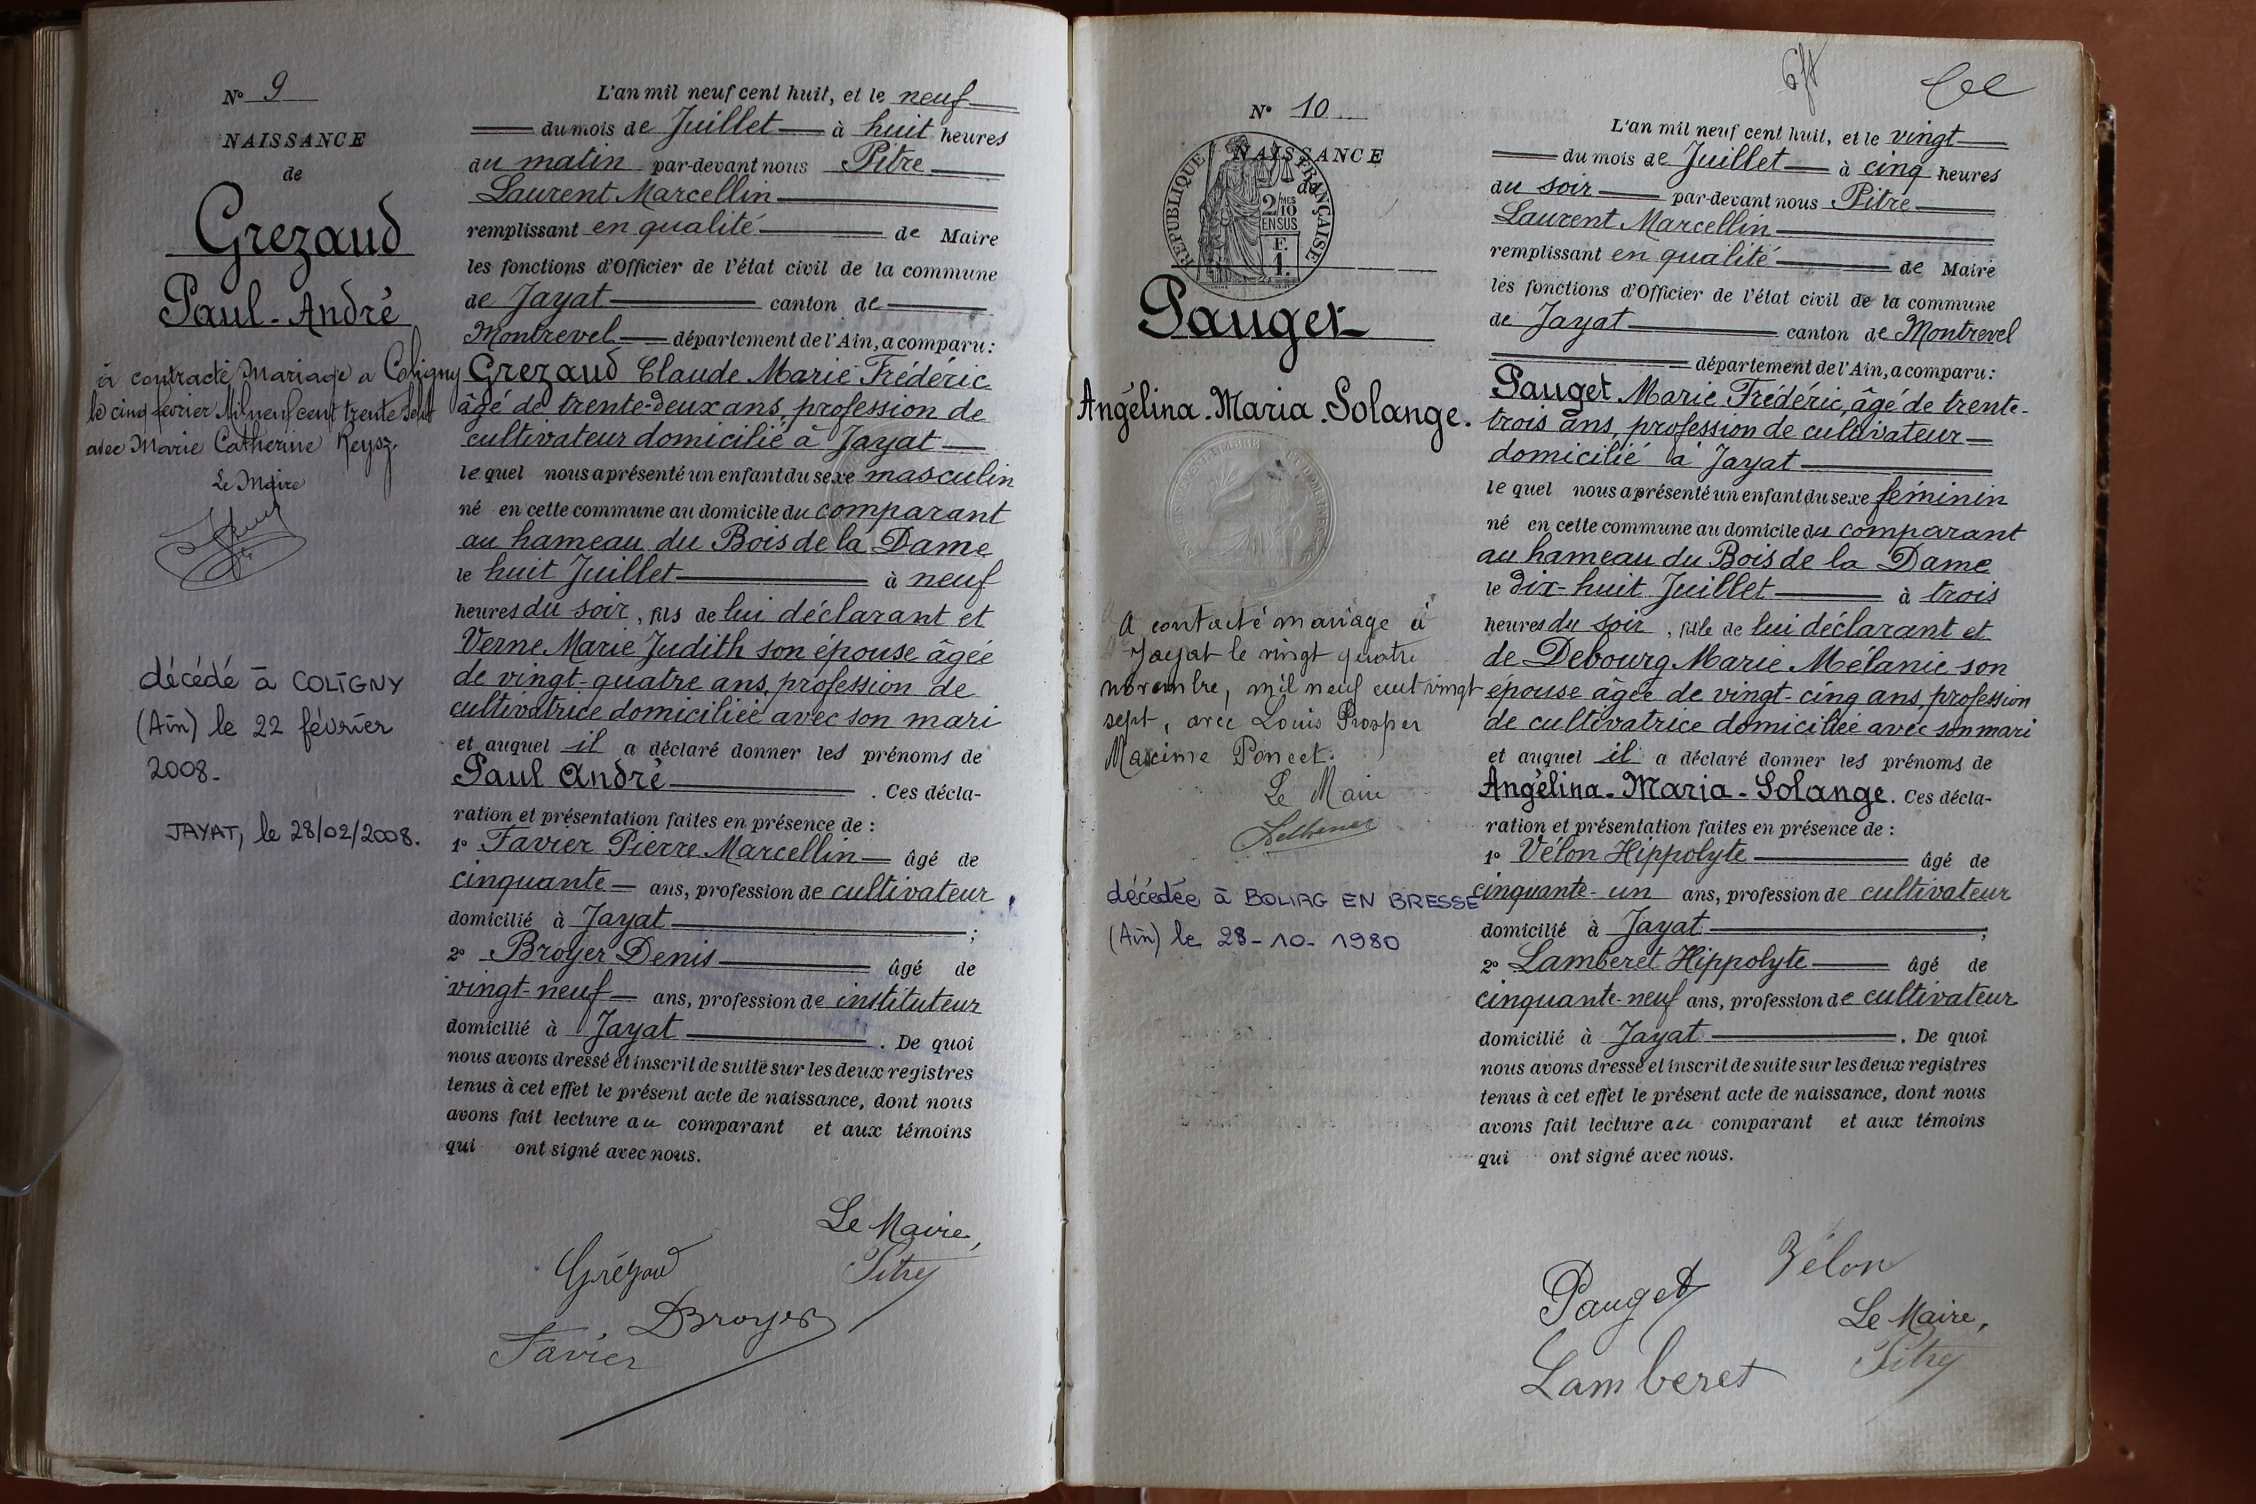 N° 9
NAISSANCE
de
Grezaud
Paul-André
à contracté Mariage a Coligny
le cinq février Mil neuf cent trente sept
avec Marie Catherine Reysz
Le Maire
décédé à COLIGNY
(Ain) le 22 février
2008.
JAYAT, le 28/02/2008.
L'an mil neuf cent huit, et le neuf
du mois de Juillet à huit heures
du matin par-devant nous Pitre
Laurent Marcellin
remplissant en qualité de Maire
les fonctions d'Officier de l'état civil de la commune
de Jayat canton de
Montrevel département de l'Ain, a comparu :
Grezaud Claude Marie Frédéric
âgé de trente-deux ans, profession de
cultivateur domicilié à Jayat
le quel nous a présenté un enfant du sexe masculin
né en cette commune au domicile du comparant
au hameau du Bois de la Dame
le huit Juillet à neuf
heures du soir, fils de lui déclarant et
Verne Marie Judith son épouse âgée
de vingt-quatre ans, profession de
cultivatrice domiciliée avec son mari
et auquel il a déclaré donner les prénoms de
Paul André . Ces décla-
ration et présentation faites en présence de :
1° Favier Pierre Marcellin âgé de
cinquante ans, profession de cultivateur
domicilié à Jayat ;
2° Broyer Denis âgé de
vingt-neuf ans, profession de instituteur
domicilié à Jayat . De quoi
nous avons dressé et inscrit de suite sur les deux registres
tenus à cet effet le présent acte de naissance, dont nous
avons fait lecture au comparant et aux témoins
qui ont signé avec nous.
Le Maire,
Grézaud Pitre
DBroyer
Favier
N° 10
NAISSANCE
de
REPUBLIQUE FRANÇAISE
2/10 MES
EN SUS
F.
1.
Pauget
Angélina-Maria-Solange.
A contacté mariage à
Jayat le vingt quatre
novembre, mil neuf cent vingt
sept, avec Louis Prosper
Maxime Poncet.
Le Maire
décédée à BOURG EN BRESSE
(Ain) le 28-10-1980
L'an mil neuf cent huit, et le vingt
du mois de Juillet à cinq heures
du soir par-devant nous Pitre
Laurent Marcellin
remplissant en qualité de Maire
les fonctions d'Officier de l'état civil de la commune
de Jayat canton de Montrevel
département de l'Ain, a comparu :
Pauget Marie Frédéric, âgé de trente-
trois ans, profession de cultivateur
domicilié à Jayat
le quel nous a présenté un enfant du sexe féminin
né en cette commune au domicile du comparant
au hameau du Bois de la Dame
le dix-huit Juillet à trois
heures du soir, fille de lui déclarant et
de Debourg Marie Mélanie son
épouse âgée de vingt-cinq ans, profession
de cultivatrice domiciliée avec son mari
et auquel il a déclaré donner les prénoms de
Angélina-Maria-Solange. Ces décla-
ration et présentation faites en présence de :
1° Vélon Hippolyte âgé de
cinquante-un ans, profession de cultivateur
domicilié à Jayat ;
2° Lamberet Hippolyte âgé de
cinquante-neuf ans, profession de cultivateur
domicilié à Jayat . De quoi
nous avons dressé et inscrit de suite sur les deux registres
tenus à cet effet le présent acte de naissance, dont nous
avons fait lecture au comparant et aux témoins
qui ont signé avec nous.
Pauget Vélon
Le Maire,
Lamberet Pitre